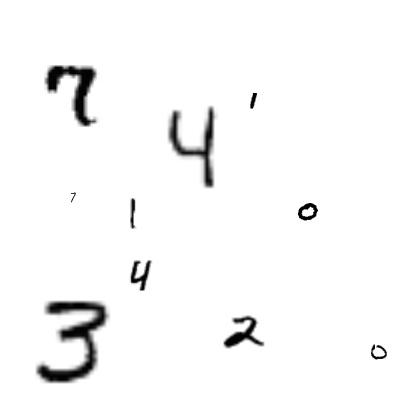 7 4 1
7 1 0
4
3 2 0